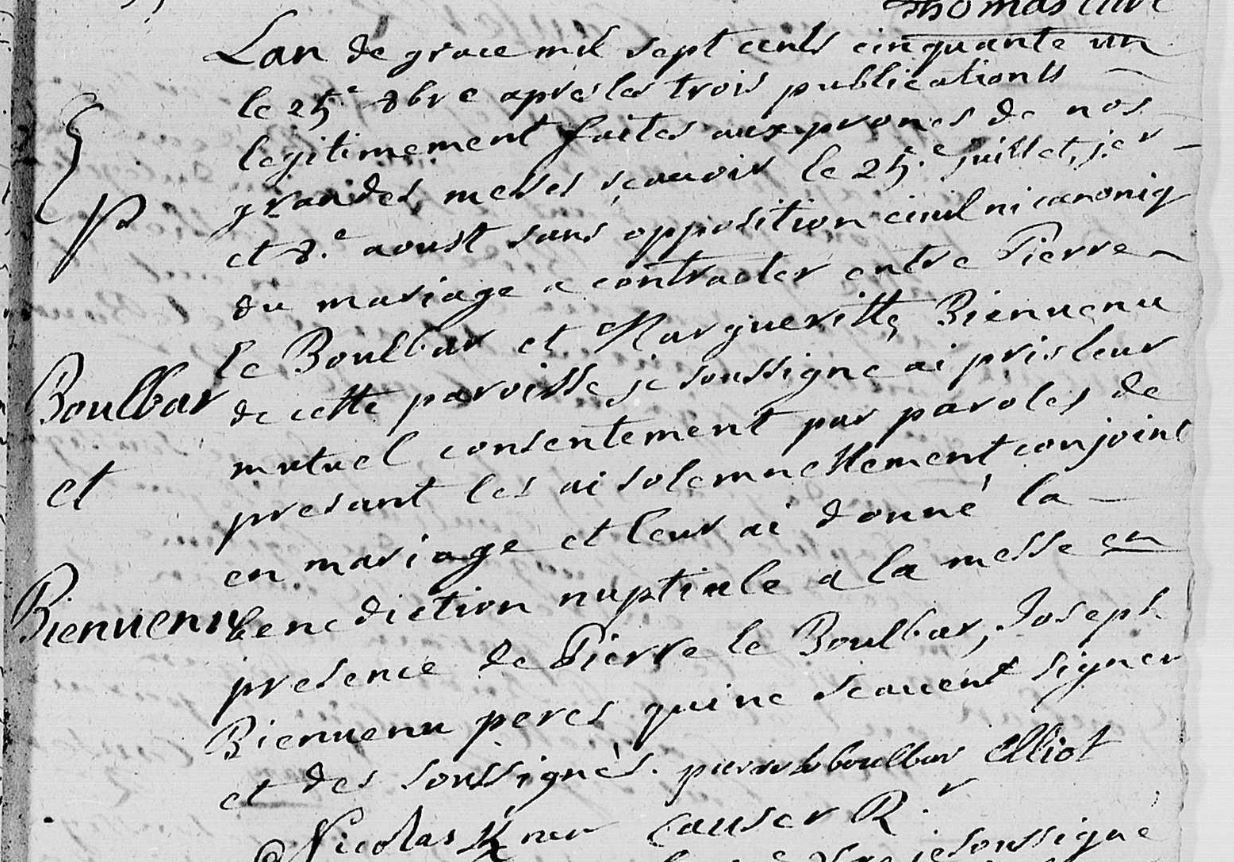 Thomas curé
Lan de grace mil sept cents cinquante un
le 25.e 8bre apres les trois publications
legitimement faites aux prones de nos
grandes messes scavoir le 25.e juillet, 1.er
et 8.e aoust sans opposition civil ni canoniq
du mariage a contracter entre Pierre
le Boulbar et Margueritte Bienvenu
de cette paroisse je soussigné ai pris leur
mutuel consentement par paroles de
presant les ai solemnellement conjoint
en mariage et leur ai donné la
benediction nuptiale a la messe en
presence de Pierre le Boulbar, Joseph
Bienvenu peres qui ne scavent signer
et des soussignés. pierre le boulbar Elliot
Nicolas Causer R.r
je soussigne
Boulbar
et
Bienvenu